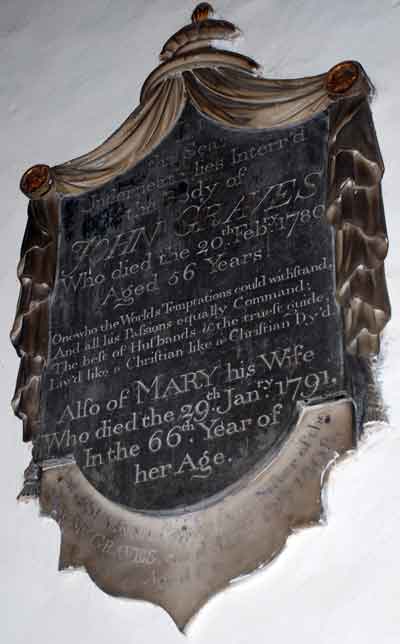 Seat
Underneath lies Interr'd
the Body of
JOHN GRAVES
Who died the 20th. Febry. 1780
Aged 56 Years
One who the World's Temptations could withstand,
And all his Passions equally Command;
The best of Husbands & the truest Guide,
Liv'd like a Christian like a Christian Dy'd.
Also of MARY his Wife
Who died the 29th. Janry. 1791,
In the 66th. Year of
her Age.
GRAVES